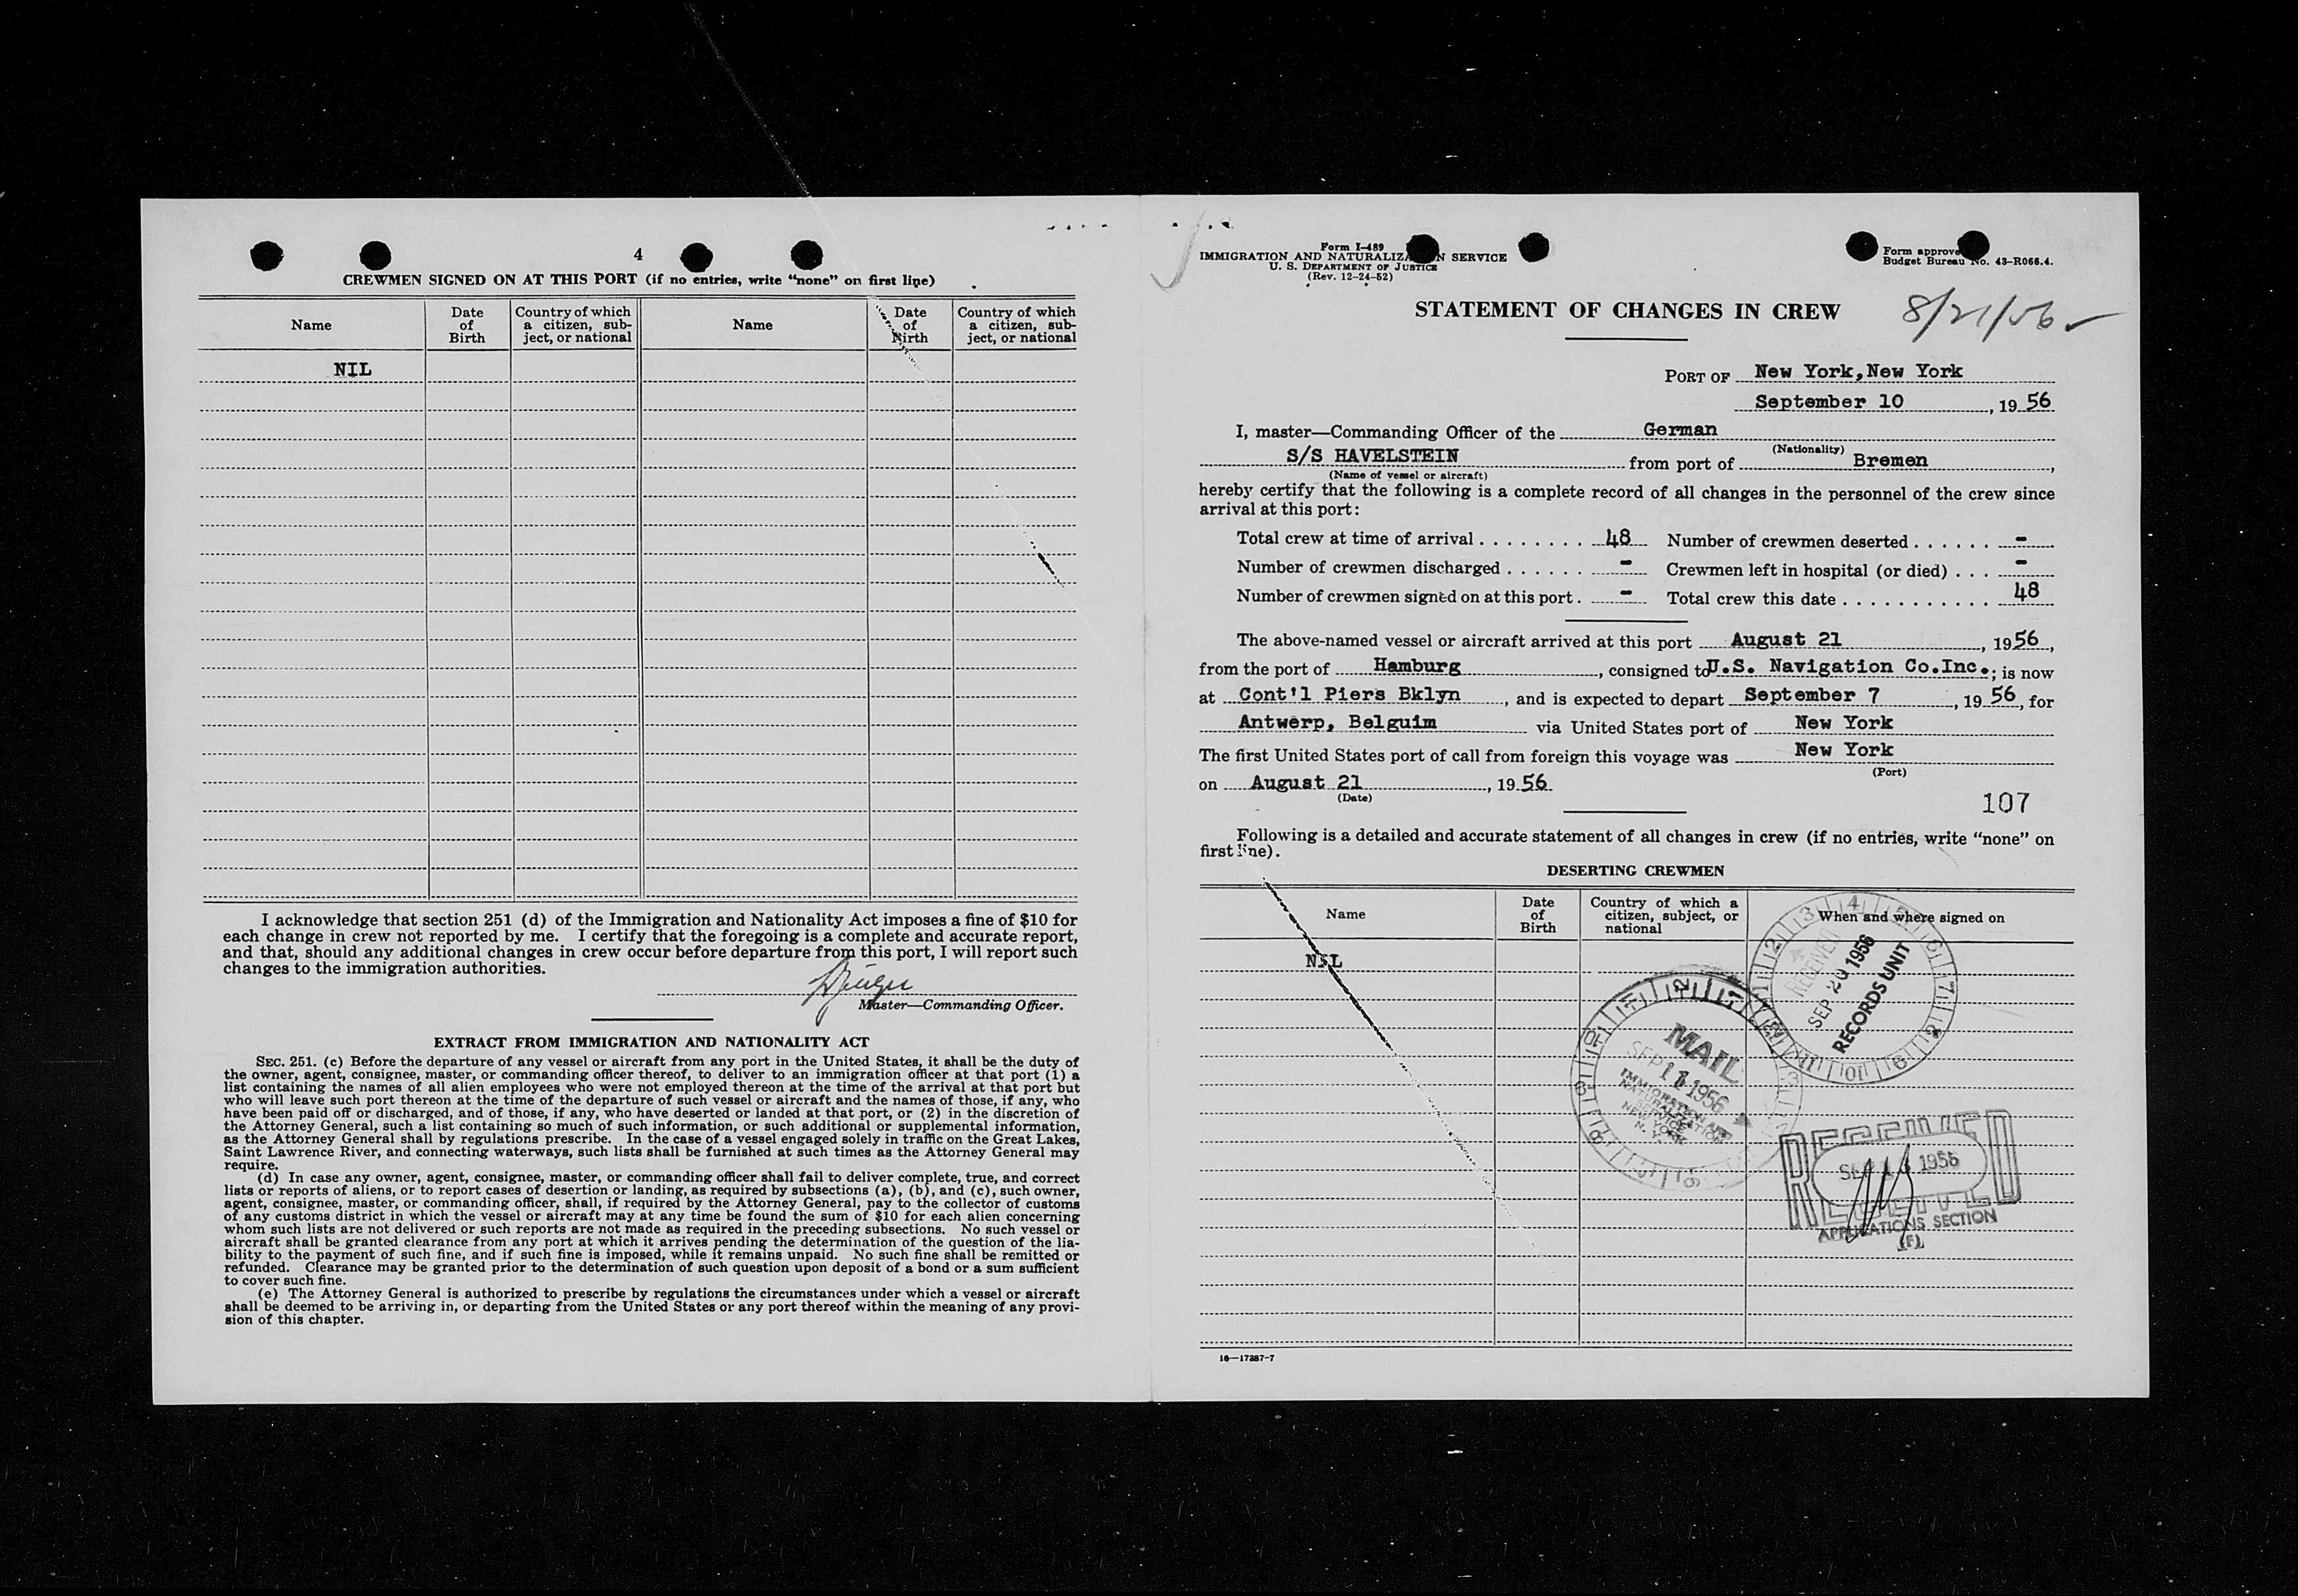 4
CREWMEN SIGNED ON AT THIS PORT (if no entries, write “none” on first line)
Name
Date of Birth
Country of which a citizen, sub-ject, or national
Name
Date of Birth
Country of which a citizen, sub-ject, or national
NIL
I acknowledge that section 251 (d) of the Immigration and Nationality Act imposes a fine of $10 for
each change in crew not reported by me. I certify that the foregoing is a complete and accurate report,
and that, should any additional changes in crew occur before departure from this port, I will report such
changes to the immigration authorities.
Master—Commanding Officer.
EXTRACT FROM IMMIGRATION AND NATIONALITY ACT
SEC. 251. (c) Before the departure of any vessel or aircraft from any port in the United States, it shall be the duty of
the owner, agent, consignee, master, or commanding officer thereof, to deliver to an immigration officer at that port (1) a
list containing the names of all alien employees who were not employed thereon at the time of the arrival at that port but
who will leave such port thereon at the time of the departure of such vessel or aircraft and the names of those, if any, who
have been paid off or discharged, and of those, if any, who have deserted or landed at that port, or (2) in the discretion of
the Attorney General, such a list containing so much of such information, or such additional or supplemental information,
as the Attorney General shall by regulations prescribe. In the case of a vessel engaged solely in traffic on the Great Lakes,
Saint Lawrence River, and connecting waterways, such lists shall be furnished at such times as the Attorney General may
require.
(d) In case any owner, agent, consignee, master, or commanding officer shall fail to deliver complete, true, and correct
lists or reports of aliens, or to report cases of desertion or landing, as required by subsections (a), (b), and (c), such owner,
agent, consignee, master, or commanding officer, shall, if required by the Attorney General, pay to the collector of customs
of any customs district in which the vessel or aircraft may at any time be found the sum of $10 for each alien concerning
whom such lists are not delivered or such reports are not made as required in the preceding subsections. No such vessel or
aircraft shall be granted clearance from any port at which it arrives pending the determination of the question of the lia-
bility to the payment of such fine, and if such fine is imposed, while it remains unpaid. No such fine shall be remitted or
refunded. Clearance may be granted prior to the determination of such question upon deposit of a bond or a sum sufficient
to cover such fine.
(e) The Attorney General is authorized to prescribe by regulations the circumstances under which a vessel or aircraft
shall be deemed to be arriving in, or departing from the United States or any port thereof within the meaning of any provi-
sion of this chapter.
Form I-489
IMMIGRATION AND NATURALIZATION SERVICE
U. S. DEPARTMENT OF JUSTICE
(Rev. 12-24-52)
Form approved
Budget Bureau No. 43-R066.4.
STATEMENT OF CHANGES IN CREW
8/21/56
PORT OF New York, New York
September 10, 19 56
I, master—Commanding Officer of the German
(Nationality)
S/S HAVELSTEIN from port of Bremen,
(Name of vessel or aircraft)
hereby certify that the following is a complete record of all changes in the personnel of the crew since
arrival at this port:
Total crew at time of arrival . . . . . . . . . 48 Number of crewmen deserted . . . . . . -
Number of crewmen discharged . . . . . . - Crewmen left in hospital (or died) . . . -
Number of crewmen signed on at this port . - Total crew this date . . . . . . . . . . . . 48
The above-named vessel or aircraft arrived at this port August 21, 1956,
from the port of Hamburg, consigned to U.S. Navigation Co.Inc.; is now
at Cont'l Piers Bklyn, and is expected to depart September 7, 19 56, for
Antwerp, Belguim via United States port of New York
The first United States port of call from foreign this voyage was New York
(Port)
on August 21, 19 56
(Date)
107
Following is a detailed and accurate statement of all changes in crew (if no entries, write “none” on
first line).
DESERTING CREWMEN
Name
Date of Birth
Country of which a citizen, subject, or national
When and where signed on
NIL
RECEIVED
SEP 20 1956
RECORDS UNIT
MAIL
SEP 11 1956
IMMIGRATION AND
NATURALIZATION
SERVICE
NEW YORK
N. Y.
RECEIVED
1956
RECEIVED
APPLICATIONS SECTION
(F)
16—17387-7